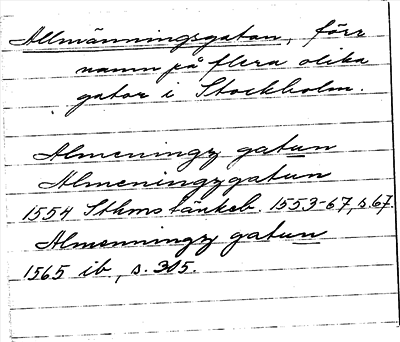 Allmänningsgatan, förr
namn på flera olika
gator i Stockholm.
Almeningz gatun
Almeningzgatun
1554 Sthms tänkeb. 1553-67, s. 67.
Almenningz gatun
1565 ib, s. 305.